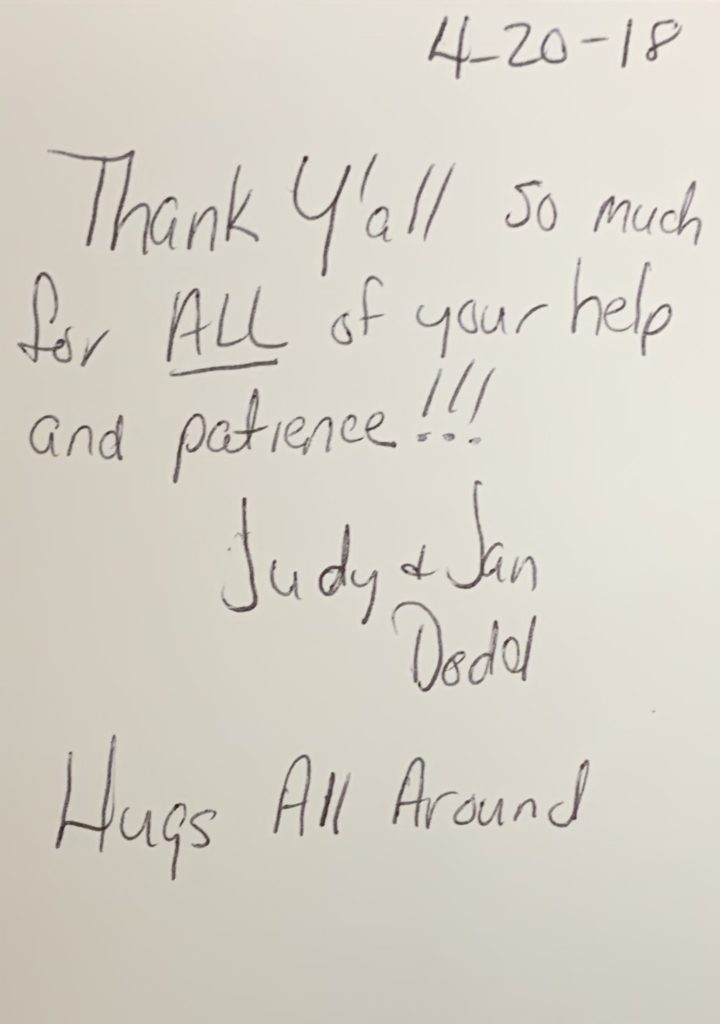 4-20-18
Thank Y'all so much
for ALL of your help
and patience!!!
Judy & Jan
Dodd
Hugs All Around